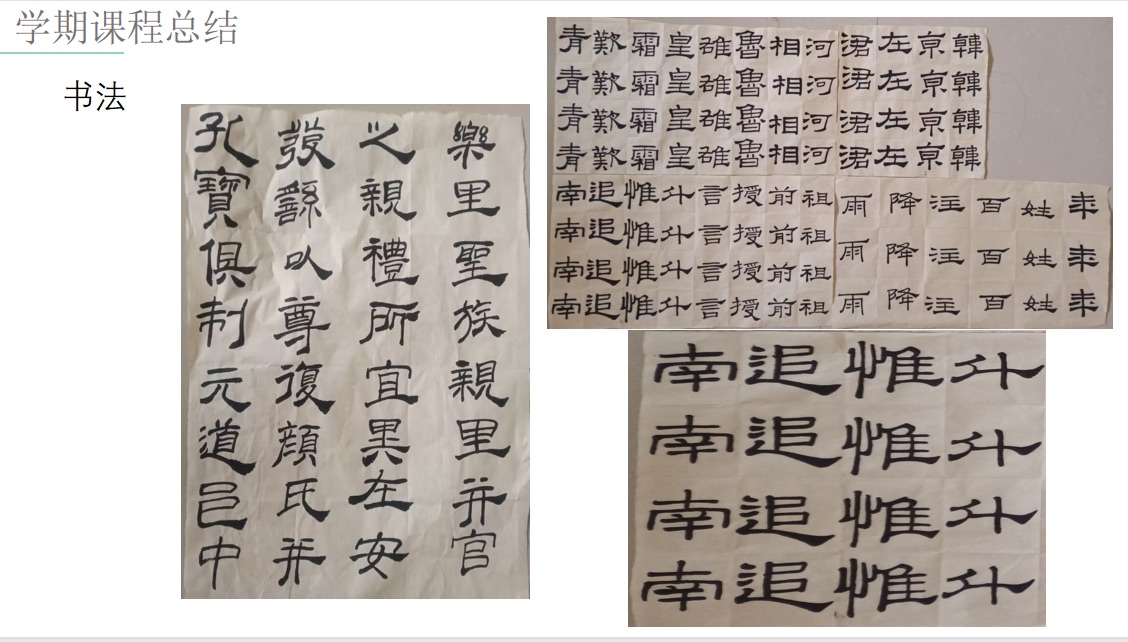 学期课程总结
书法
樂里聖族親里并官
之親禮所宜異在安
發繇以尊復顏氏并
孔寶俱制元道邑中
青歎霜皇雒魯相河涒左京韓
青歎霜皇雒魯相河涒左京韓
青歎霜皇雒魯相河涒左京韓
青歎霜皇雒魯相河涒左京韓
南追惟升言授前祖
南追惟升言授前祖
南追惟升言授前祖
南追惟升言授前祖
雨降百姓
雨降百姓
雨降百姓
南追惟升
南追惟升
南追惟升
南追惟升